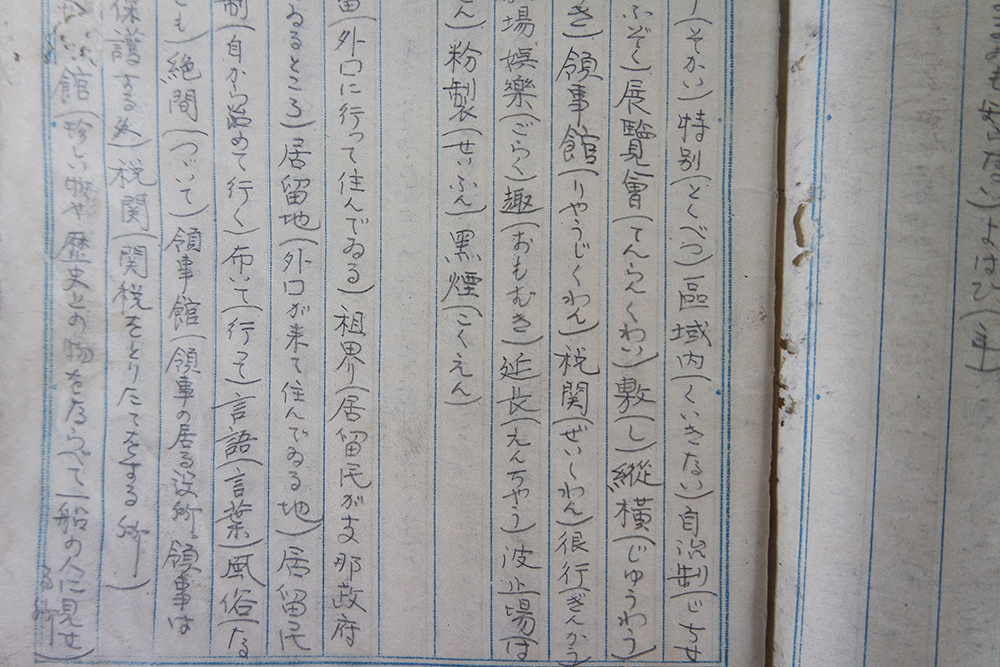 知らない)よはひ(年)
(そかい)特別(とくべつ)區域内(くいきない)自治制(じちせ
ふぞく)展覽會(てんらんくわい)敷(し)縱橫(じゆうわう)
き)領事館(りやうじくわん)税関(ぜいくわん)銀行(ぎんかう)
場)娯樂(ごらく)趣(おもむき)延長(えんちやう)波止場(は
ん)粉製(せいふん)黒煙(こくえん)
留(外口に行って住んでゐる)租界(居留民が支那政府
ゐるところ)居留地(外口が来て住んでゐる地)居留民
制(自から治めて行く)布いて(行って)言語(言葉)風俗(な
も)絶間(つゞいて)領事館(領事の居る役所。領事は
保護する処)税関(関税をとりたてをする所)
館(珍しい物や歴史上の物をならべて一般の人に見せ
る所)